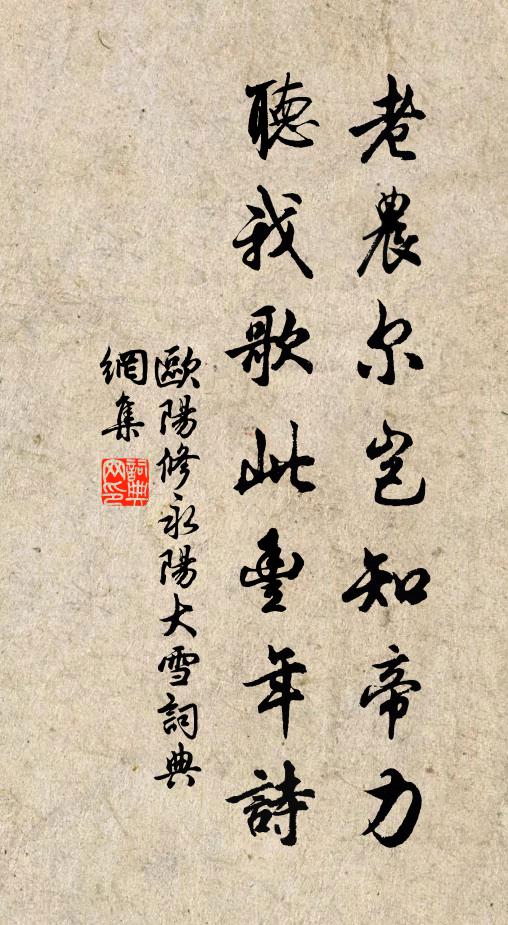 老農尔豈知帝力
聽我歌此豐年詩
歐陽修永陽大雪詞典
網集
詞典
网印